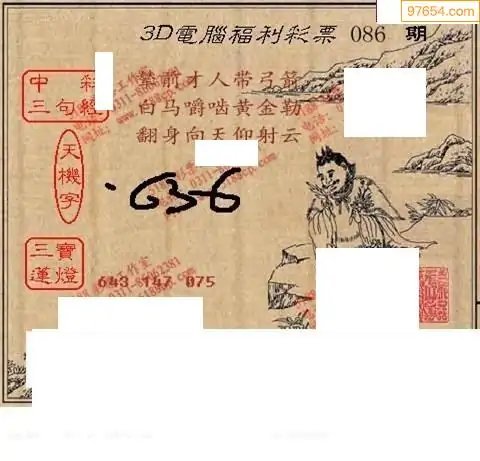 97654.com
3D電腦福利彩票 086 期
中彩
三句經
輦前才人带弓箭
白马嚼啮黄金勒
翻身向天仰射云
天機字
636
三寶
蓮燈
643 147 075